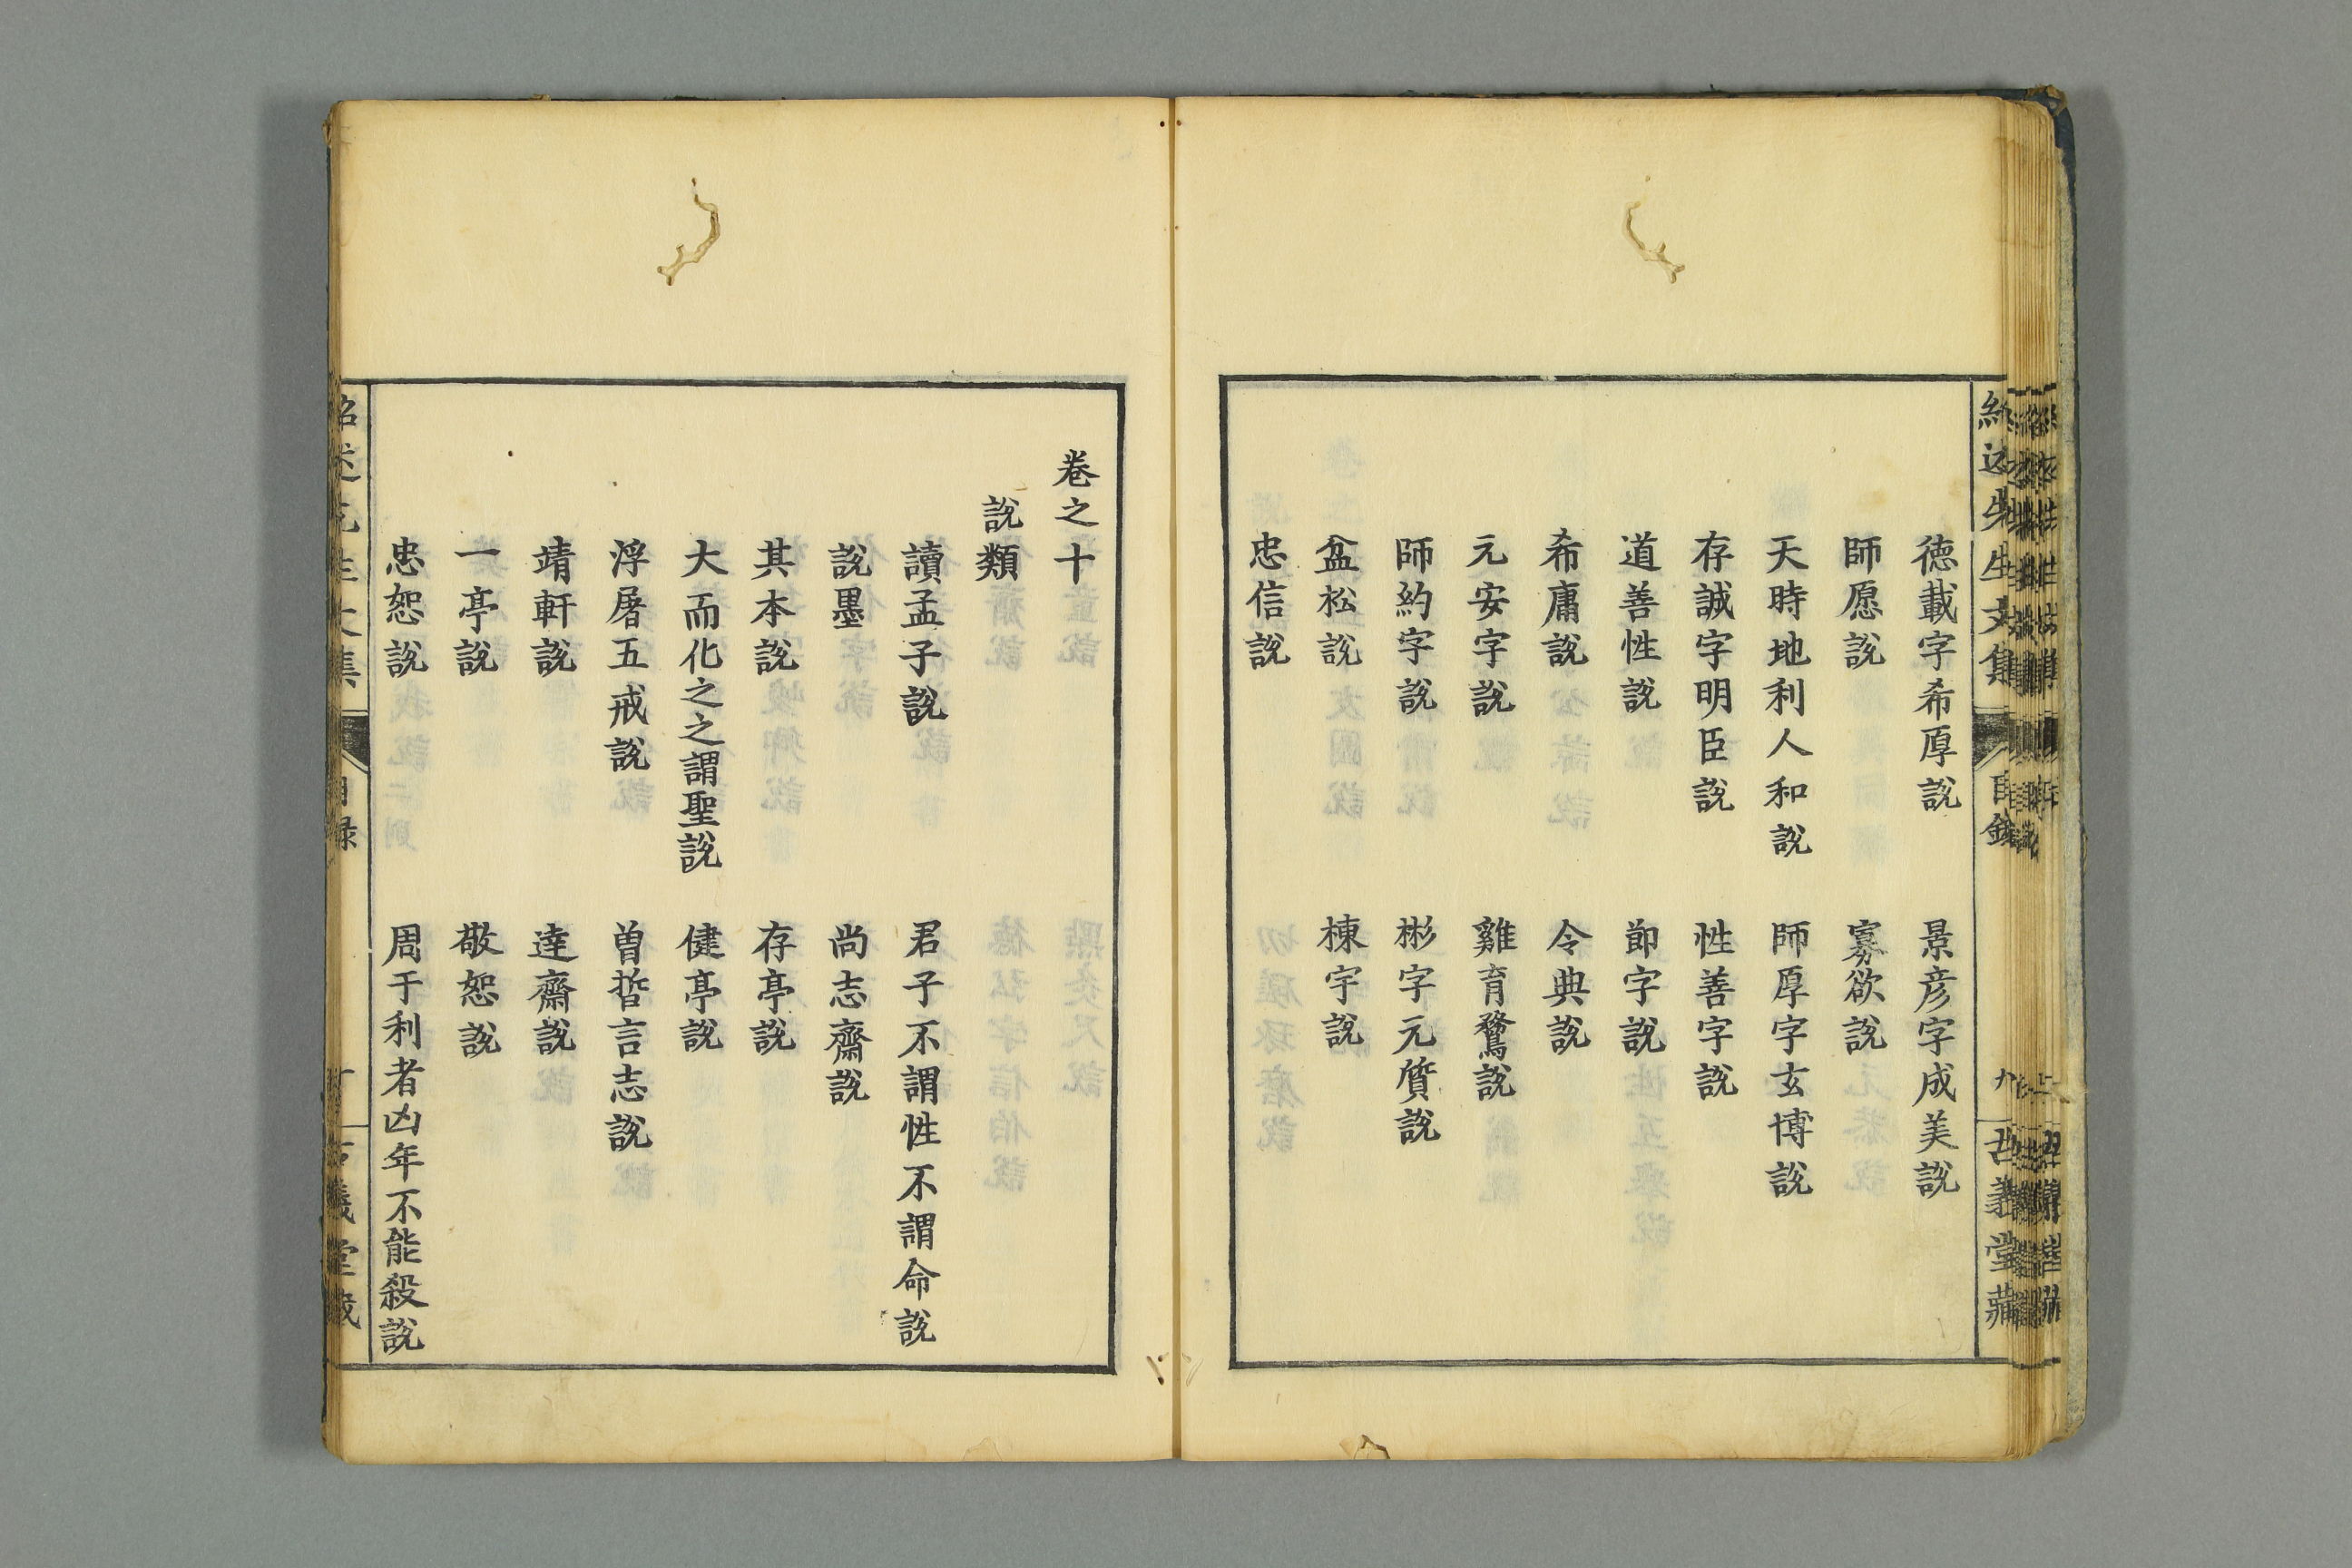 德載字希厚說　景彦字成美說
師愿說　寡欲說
天時地利人和說　師厚字玄博說
存誠字明臣說　性善字說
道善性說　節字說
希庸說　令典說
元安字說　雞育鶩說
師約字說　彬字元質說
盆松說　棟宇說
忠信說
卷之十
說類
讀孟子說　君子不謂性不謂命說
說墨　尚志齋說
其本說　存亭說
大而化之之謂聖說　健亭說
浮屠五戒說　曽晳言志說
靖軒說　達齋說
一亭說　敬恕說
忠恕說　周于利者凶年不能殺說
紹述先生文集　目錄　古義堂藏